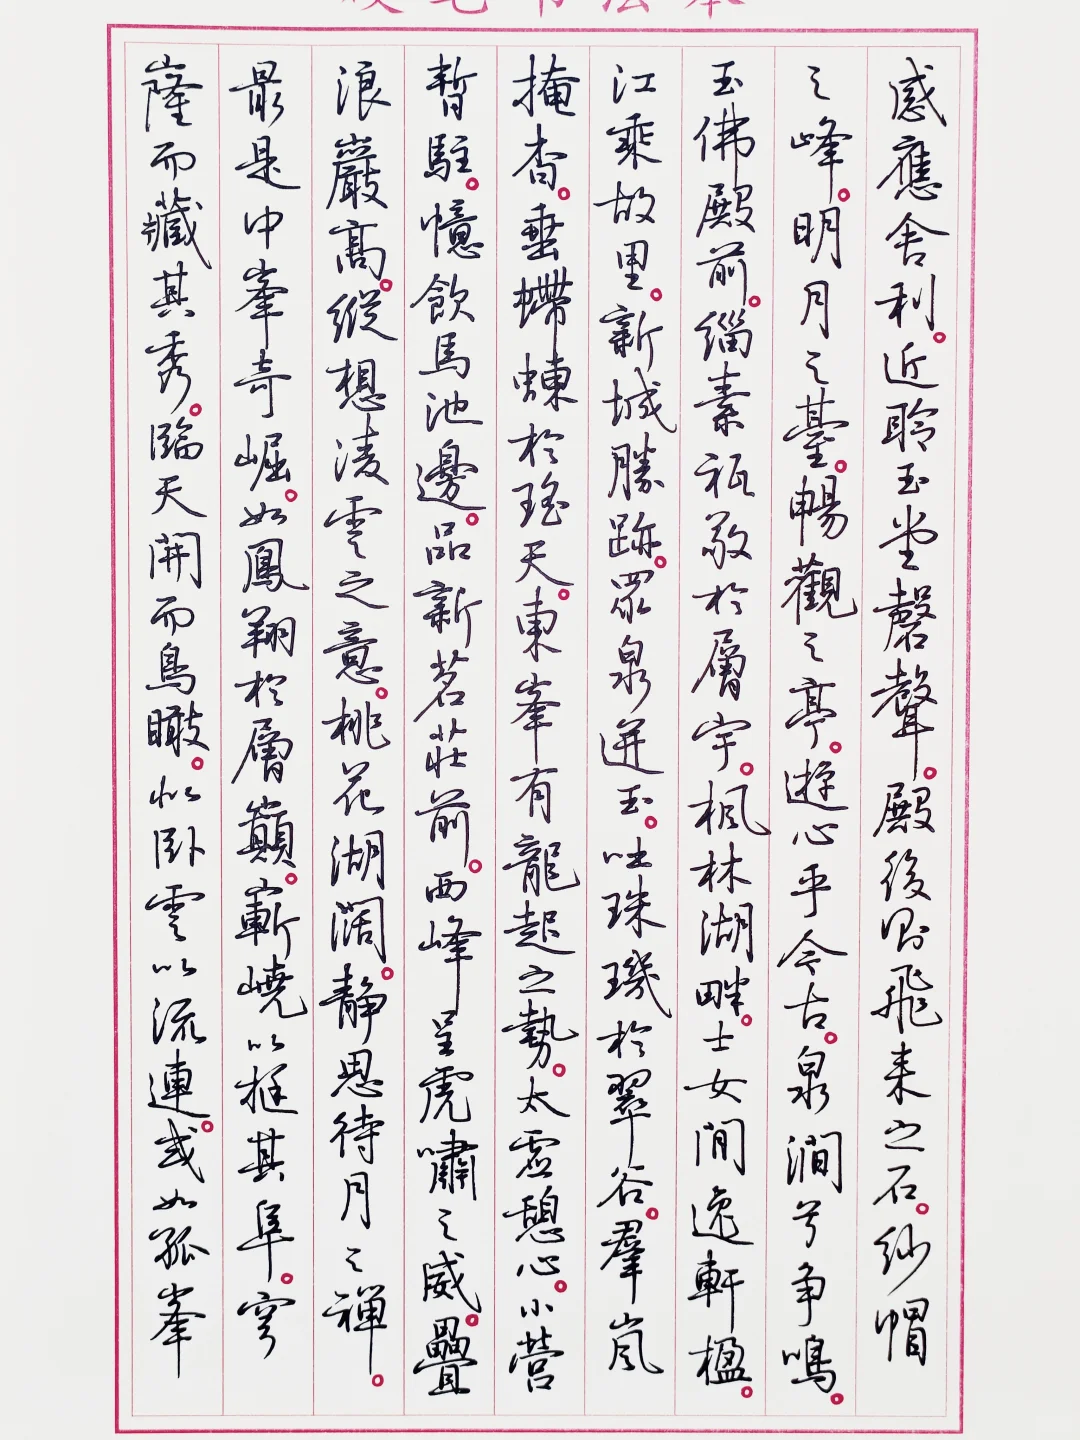 硬笔书法本
感應舍利。近聆玉堂磬聲。殿後則飛来之石。紗帽
之峰。明月之臺。暢觀之亭。遊心乎今古。泉澗兮争鳴。
玉佛殿前。缁素祗敬於層宇。楓林湖畔。士女閒逸軒楹。
江乘故里。新城勝跡。眾泉迸玉。吐珠璣於翠谷。羣嵐
掩杳。垂螮蝀於瑤天。東峯有龍起之勢。太虛憩心。小营
暫駐。憶飲馬池邊。品新茗莊前。西峰呈虎嘯之威。疊
浪巖高。縱想淩雲之意。桃花湖阔。静思待月之禅。
最是中峯奇崛。如鳳翔於層巔。嶄嶢以挺其阜。穹
窿而藏其秀。臨天開而鳥瞰。似卧雲以流連。或如孤峯